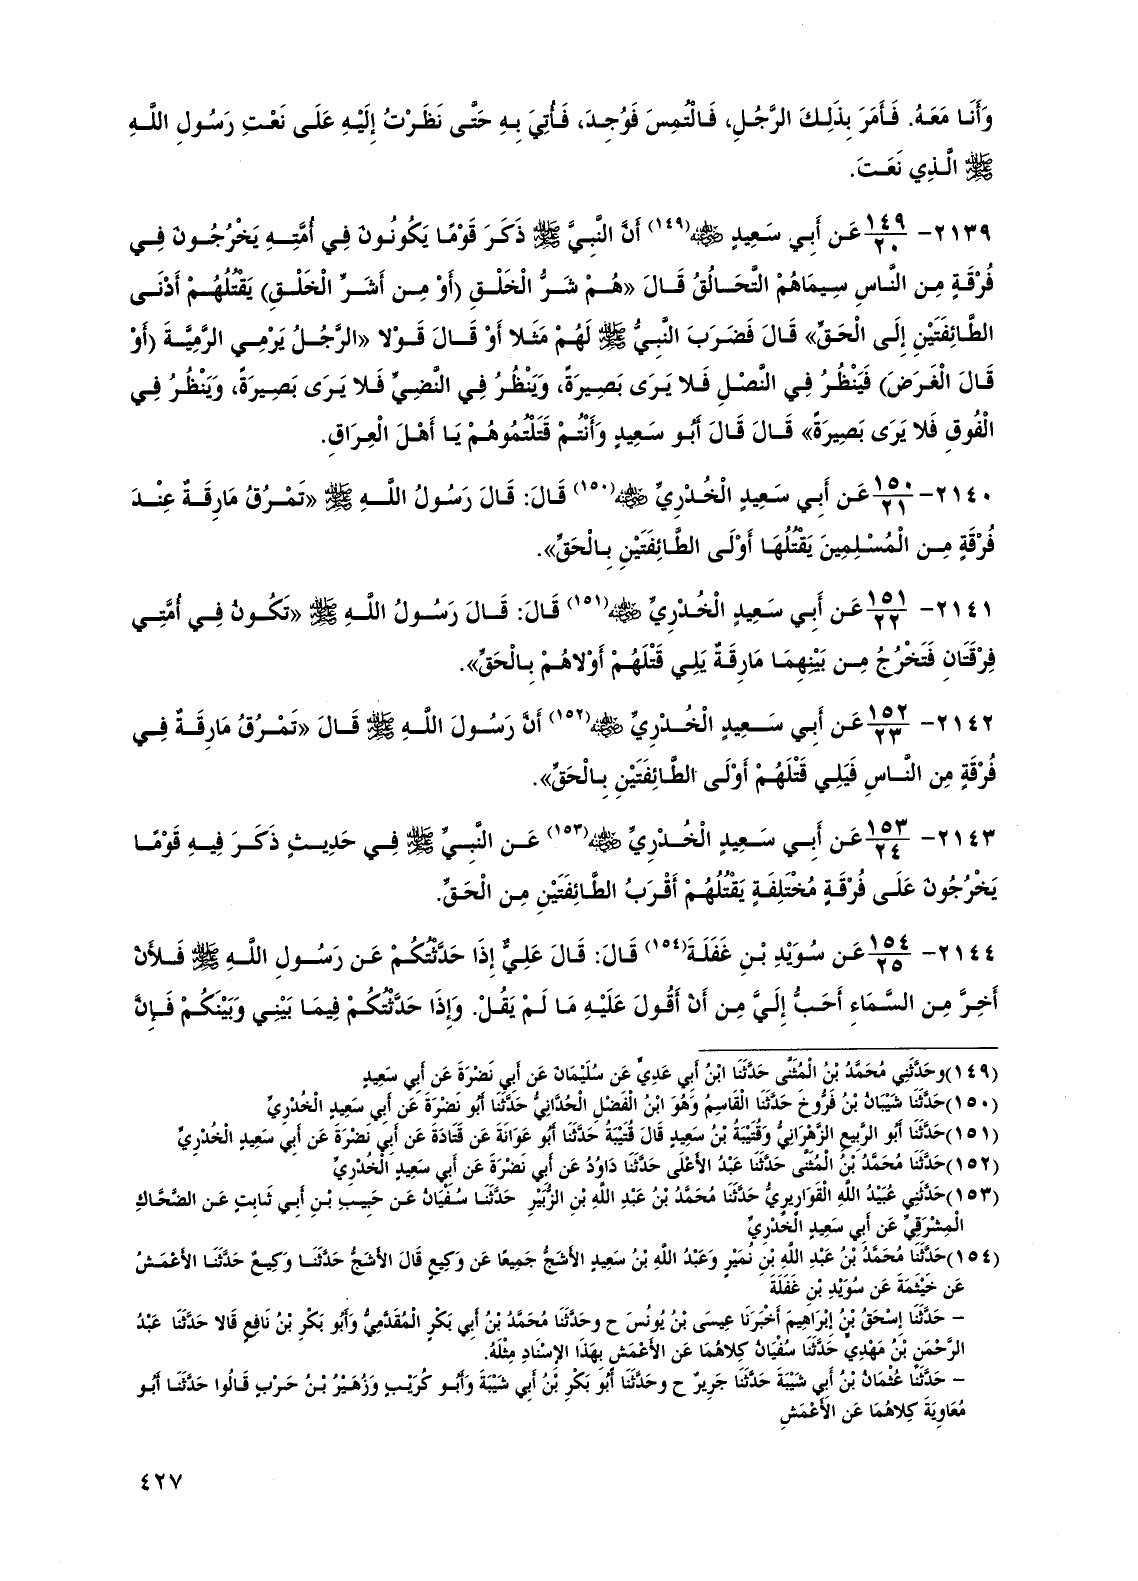 وَأَنَا مَعَهُ. فَأَمَرَ بِذَلِكَ الرَّجُلِ، فَالْتُمِسَ فَوُجِدَ، فَأُتِيَ بِهِ حَتَّى نَظَرْتُ إِلَيْهِ عَلَى نَعْتِ رَسُولِ اللَّهِ
ﷺ الَّذِي نَعَتَ.
٢١٣٩- ١٤٩/٢٠ عَن أَبِي سَعِيدٍ ﷺ(١٤٩) أَنَّ النَّبِيَّ ﷺ ذَكَرَ قَوْمًا يَكُونُونَ فِي أُمَّتِهِ يَخْرُجُونَ فِي
فُرْقَةٍ مِن النَّاسِ سِيمَاهُمْ التَّحَالُقُ قَالَ «هُمْ شَرُّ الْخَلْقِ (أَوْ مِن أَشَرِّ الْخَلْقِ) يَقْتُلُهُمْ أَدْنَى
الطَّائِفَتَيْنِ إِلَى الْحَقِّ» قَالَ فَضَرَبَ النَّبِيُّ ﷺ لَهُمْ مَثَلا أَوْ قَالَ قَوْلا «الرَّجُلُ يَرْمِي الرَّمِيَّةَ (أَوْ
قَالَ الْغَرَضَ) فَيَنْظُرُ فِي النَّصْلِ فَلا يَرَى بَصِيرَةً، وَيَنْظُرُ فِي النَّضِيِّ فَلا يَرَى بَصِيرَةً، وَيَنْظُرُ فِي
الْفُوقِ فَلا يَرَى بَصِيرَةً» قَالَ قَالَ أَبُو سَعِيدٍ وَأَنْتُمْ قَتَلْتُمُوهُمْ يَا أَهْلَ الْعِرَاقِ.
٢١٤٠- ١٥٠/٢١ عَن أَبِي سَعِيدٍ الْخُدْرِيِّ ﵁(١٥٠) قَالَ: قَالَ رَسُولُ اللَّهِ ﷺ «تَمْرُقُ مَارِقَةٌ عِنْدَ
فُرْقَةٍ مِن الْمُسْلِمِينَ يَقْتُلُهَا أَوْلَى الطَّائِفَتَيْنِ بِالْحَقِّ».
٢١٤١- ١٥١/٢٢ عَن أَبِي سَعِيدٍ الْخُدْرِيِّ ﵁(١٥١) قَالَ: قَالَ رَسُولُ اللَّهِ ﷺ «تَكُونُ فِي أُمَّتِي
فِرْقَتَانِ فَتَخْرُجُ مِن بَيْنِهِمَا مَارِقَةٌ يَلِي قَتْلَهُمْ أَوْلاهُمْ بِالْحَقِّ».
٢١٤٢- ١٥٢/٢٣ عَن أَبِي سَعِيدٍ الْخُدْرِيِّ ﵁(١٥٢) أَنَّ رَسُولَ اللَّهِ ﷺ قَالَ «تَمْرُقُ مَارِقَةٌ فِي
فُرْقَةٍ مِن النَّاسِ فَيَلِي قَتْلَهُمْ أَوْلَى الطَّائِفَتَيْنِ بِالْحَقِّ».
٢١٤٣- ١٥٣/٢٤ عَن أَبِي سَعِيدٍ الْخُدْرِيِّ ﵁(١٥٣) عَن النَّبِيِّ ﷺ فِي حَدِيثٍ ذَكَرَ فِيهِ قَوْمًا
يَخْرُجُونَ عَلَى فُرْقَةٍ مُخْتَلِفَةٍ يَقْتُلُهُمْ أَقْرَبُ الطَّائِفَتَيْنِ مِن الْحَقِّ.
٢١٤٤- ١٥٤/٢٥ عَن سُوَيْدِ بْنِ غَفَلَةَ(١٥٤) قَالَ: قَالَ عَلِيٌّ إِذَا حَدَّثْتُكُمْ عَن رَسُولِ اللَّهِ ﷺ فَلأَنْ
أَخِرَّ مِن السَّمَاءِ أَحَبُّ إِلَيَّ مِن أَنْ أَقُولَ عَلَيْهِ مَا لَمْ يَقُلْ. وَإِذَا حَدَّثْتُكُمْ فِيمَا بَيْنِي وَبَيْنَكُمْ فَإِنَّ
(١٤٩)وحَدَّثَنِي مُحَمَّدُ بْنُ الْمُثَنَّى حَدَّثَنَا ابْنُ أَبِي عَدِيٍّ عَن سُلَيْمَانَ عَن أَبِي نَضْرَةَ عَن أَبِي سَعِيدٍ
(١٥٠)حَدَّثَنَا شَيْبَانُ بْنُ فَرُّوخَ حَدَّثَنَا الْقَاسِمُ وَهُوَ ابْنُ الْفَضْلِ الْحُدَّانِيُّ حَدَّثَنَا أَبُو نَضْرَةَ عَن أَبِي سَعِيدٍ الْخُدْرِيِّ
(١٥١)حَدَّثَنَا أَبُو الرَّبِيعِ الزَّهْرَانِيُّ وَقُتَيْبَةُ بْنُ سَعِيدٍ قَالَ قُتَيْبَةُ حَدَّثَنَا أَبُو عَوَانَةَ عَن قَتَادَةَ عَن أَبِي نَضْرَةَ عَن أَبِي سَعِيدٍ الْخُدْرِيِّ
(١٥٢)حَدَّثَنَا مُحَمَّدُ بْنُ الْمُثَنَّى حَدَّثَنَا عَبْدُ الأَعْلَى حَدَّثَنَا دَاوُدُ عَن أَبِي نَضْرَةَ عَن أَبِي سَعِيدٍ الْخُدْرِيِّ
(١٥٣)حَدَّثَنِي عُبَيْدُ اللَّهِ الْقَوَارِيرِيُّ حَدَّثَنَا مُحَمَّدُ بْنُ عَبْدِ اللَّهِ بْنِ الزُّبَيْرِ حَدَّثَنَا سُفْيَانُ عَن حَبِيبِ بْنِ أَبِي ثَابِتٍ عَن الضَّحَّاكِ
الْمِشْرَقِيِّ عَن أَبِي سَعِيدٍ الْخُدْرِيِّ
(١٥٤)حَدَّثَنَا مُحَمَّدُ بْنُ عَبْدِ اللَّهِ بْنِ نُمَيْرٍ وَعَبْدُ اللَّهِ بْنُ سَعِيدٍ الأَشَجُّ جَمِيعًا عَن وَكِيعٍ قَالَ الأَشَجُّ حَدَّثَنَا وَكِيعٌ حَدَّثَنَا الأَعْمَشُ
عَن خَيْثَمَةَ عَن سُوَيْدِ بْنِ غَفَلَةَ
– حَدَّثَنَا إِسْحَقُ بْنُ إِبْرَاهِيمَ أَخْبَرَنَا عِيسَى بْنُ يُونُسَ ح وحَدَّثَنَا مُحَمَّدُ بْنُ أَبِي بَكْرٍ الْمُقَدَّمِيُّ وَأَبُو بَكْرِ بْنُ نَافِعٍ قَالا حَدَّثَنَا عَبْدُ
الرَّحْمَنِ بْنُ مَهْدِيٍّ حَدَّثَنَا سُفْيَانُ كِلاهُمَا عَن الأَعْمَشِ بِهَذَا الإِسْنَادِ مِثْلَهُ.
– حَدَّثَنَا عُثْمَانُ بْنُ أَبِي شَيْبَةَ حَدَّثَنَا جَرِيرٌ ح وحَدَّثَنَا أَبُو بَكْرِ بْنُ أَبِي شَيْبَةَ وَأَبُو كُرَيْبٍ وَزُهَيْرُ بْنُ حَرْبٍ قَالُوا حَدَّثَنَا أَبُو
مُعَاوِيَةَ كِلاهُمَا عَن الأَعْمَشِ
٤٢٧